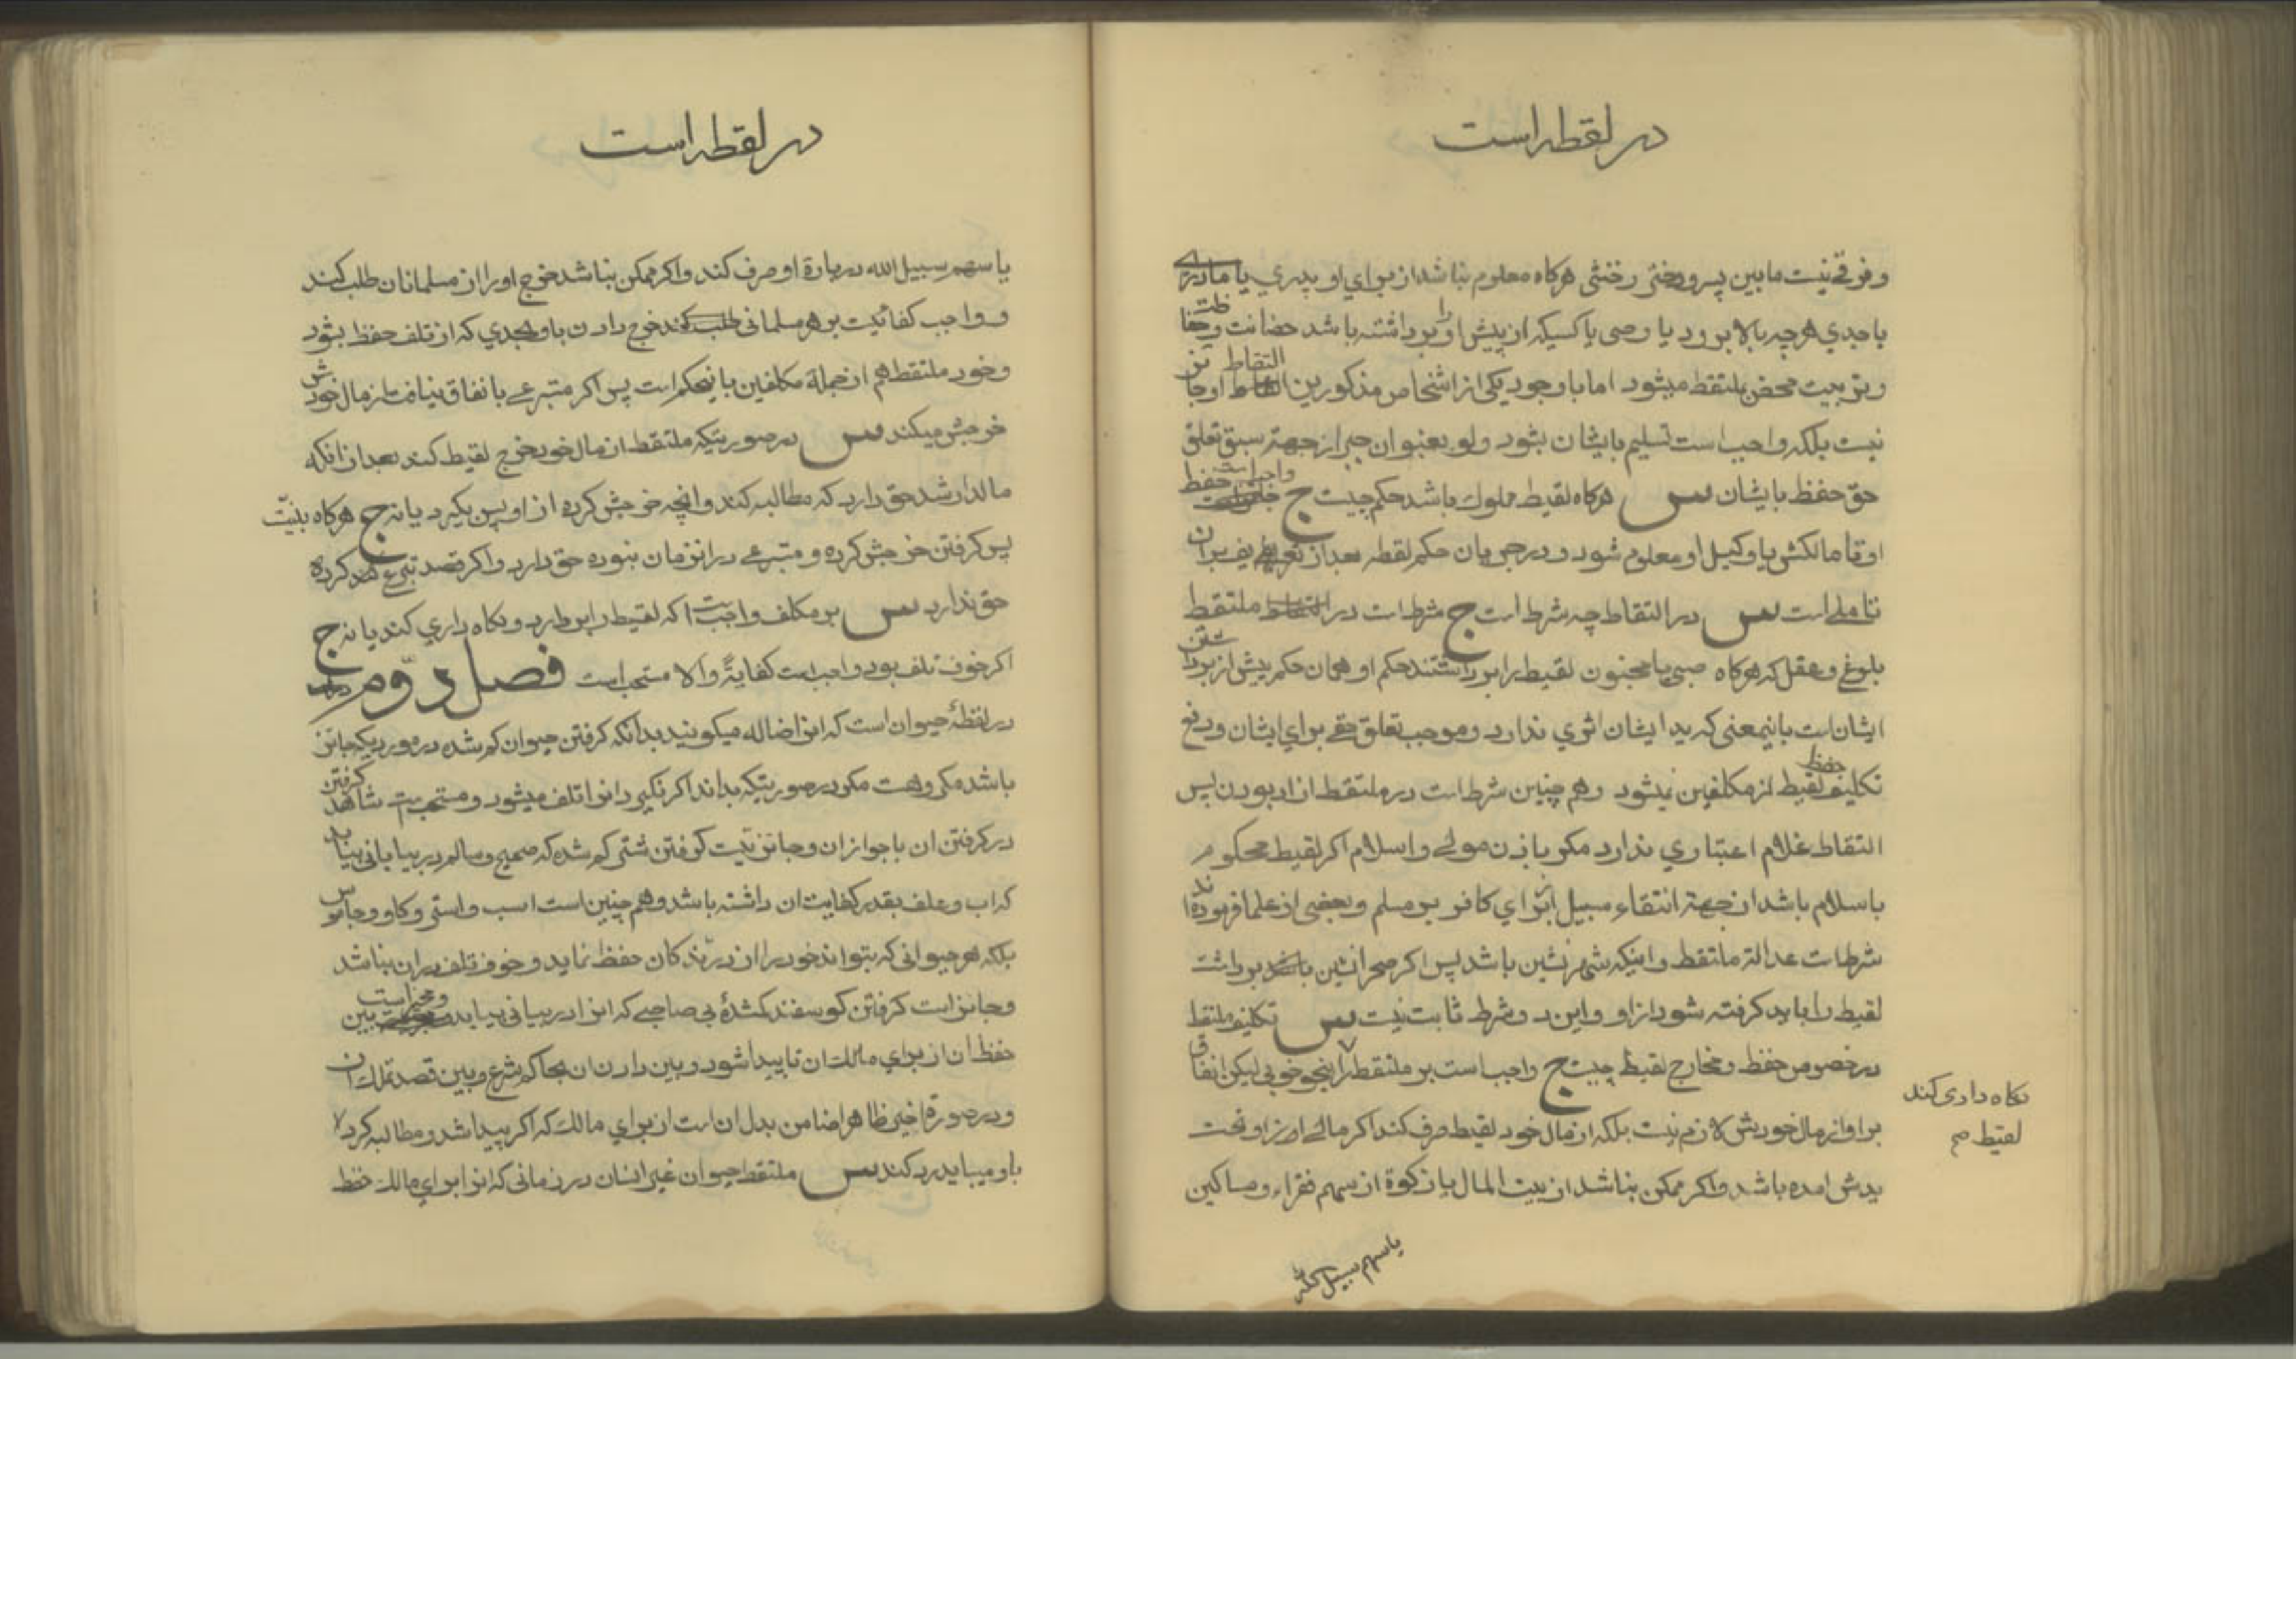 در لقطه است
و فرقی نیست مابین پسر و دختر و خنثی هرکاه معلوم نباشد از برای او پدری یا مادری
یا جدی هرچه بالا برود یا وصی یا کسیکه از پیش او را برداشته باشد حضانت و حفاظت
و تربیت محض ملتقط میشود اما با وجود یکی از اشخاص مذکورین التقاط او جائز
نیست بلکه واجب است تسلیم بایشان بشود ولو بعنوان جبر از جهة سبق تعلق
حق حفظ بایشان س هرکاه لقیط مملوک باشد حکم چیست ج واجب است حفظ
او تا مالکش یا وکیل او معلوم شود و در جریان حکم لقطه بعد از تعریف بران
تاملی است س در التقاط چه شرط است ج شرط است در ملتقط
بلوغ و عقل که هرکاه صبی یا مجنون لقیط را برداشتند حکم او همان حکم پیش از برداشتن
ایشان است باینمعنی که ید ایشان اثری ندارد و موجب تعلق حقی برای ایشان و رفع
تکلیف حفظ لقیط از مکلفین نمیشود و هم چنین شرط است در ملتقط ازاد بودن پس
التقاط غلام اعتباری ندارد مکر باذن مولی و اسلام اکر لقیط محکوم
باسلام باشد از جهة انتفاء سبیل از برای کافر بر مسلم و بعضی از علما فرموده‌اند
شرط است عدالة ملتقط و اینکه شهر نشین باشد پس اکر صحرا نشین برداشت
لقیط را باید کرفته شود از او و این دو شرط ثابت نیست س تکلیف ملتقط
در خصوص حفظ و مخارج لقیط چیست ج واجب است بر ملتقط بنحو خوبی لیکن انفاق
نکاه داری کند
لقیط صح
براو از مال خودش لازم نیست بلکه از مال خود لقیط صرف کند اکر مالی از او تحت
یدش امده باشد و اکر ممکن نباشد از بیت المال یا زکوة از سهم فقراء و مساکین
یا سهم سبیل الله
در لقطه است
یا سهم سبیل الله درباره او صرف کند و اکر ممکن نباشد خرج او را از مسلمانان طلب کند
و واجب کفائیست بر هر مسلمانی خرج دادن باو بحدی که از تلف حفظ بشود
و خود ملتقط هم از جمله مکلفین باینحکم است پس اکر متبرعی بانفاق نیافت از مال خودش
خرجش میکند س در صورتیکه ملتقط از مال خود خرج لقیط کند بعد از انکه
مالدار شد حق دارد که مطالبه کند و انچه خرجش کرده از او پس بکیرد یا نه ج هرکاه بنیت
پس کرفتن خرجش کرده و متبرعی در انزمان نبوده حق دارد و اکر قصد تبرع کرده
حق ندارد س بر مکلف واجبست که لقیط را بردارد و نکاه داری کند یا نه ج
اکر خوف تلف بود واجب است کفایةً والا مستحب است فصل دوم
در لقطهٔ حیوان است که انرا ضاله میکویند بدانکه کرفتن حیوان کم شده در موردیکه جائز
باشد مکروهست مکر در صورتیکه بداند اکر نکیرد انرا تلف میشود و مستحب است شاهد کرفتن
در کرفتن ان با جواز ان و جائز نیست کرفتن شتر کم شده که صحیح و سالم در بیابانی بیابد
که اب و علف بقدر کفایت ان داشته باشد و هم چنین است اسب و استر و کاو و جاموس
بلکه هر حیوانی که بتواند خود را از درندکان حفظ نماید و خوف تلف در ان نباشد
و جائز است کرفتن کوسفند کمشدهٔ بی صاحبی که انرا در بیابانی بیابد و مخیر است بین
حفظ ان از برای مالک ان تا پیدا شود و بین دادن ان بحاکم شرع و بین قصد تملک ان
و در صورة اخیر ظاهرا ضامن بدل ان است از برای مالک که اکر پیدا شد و مطالبه کرد
باو میباید رد کند س ملتقط حیوان غیر انسان در زمانی که انرا برای مالک حفظ